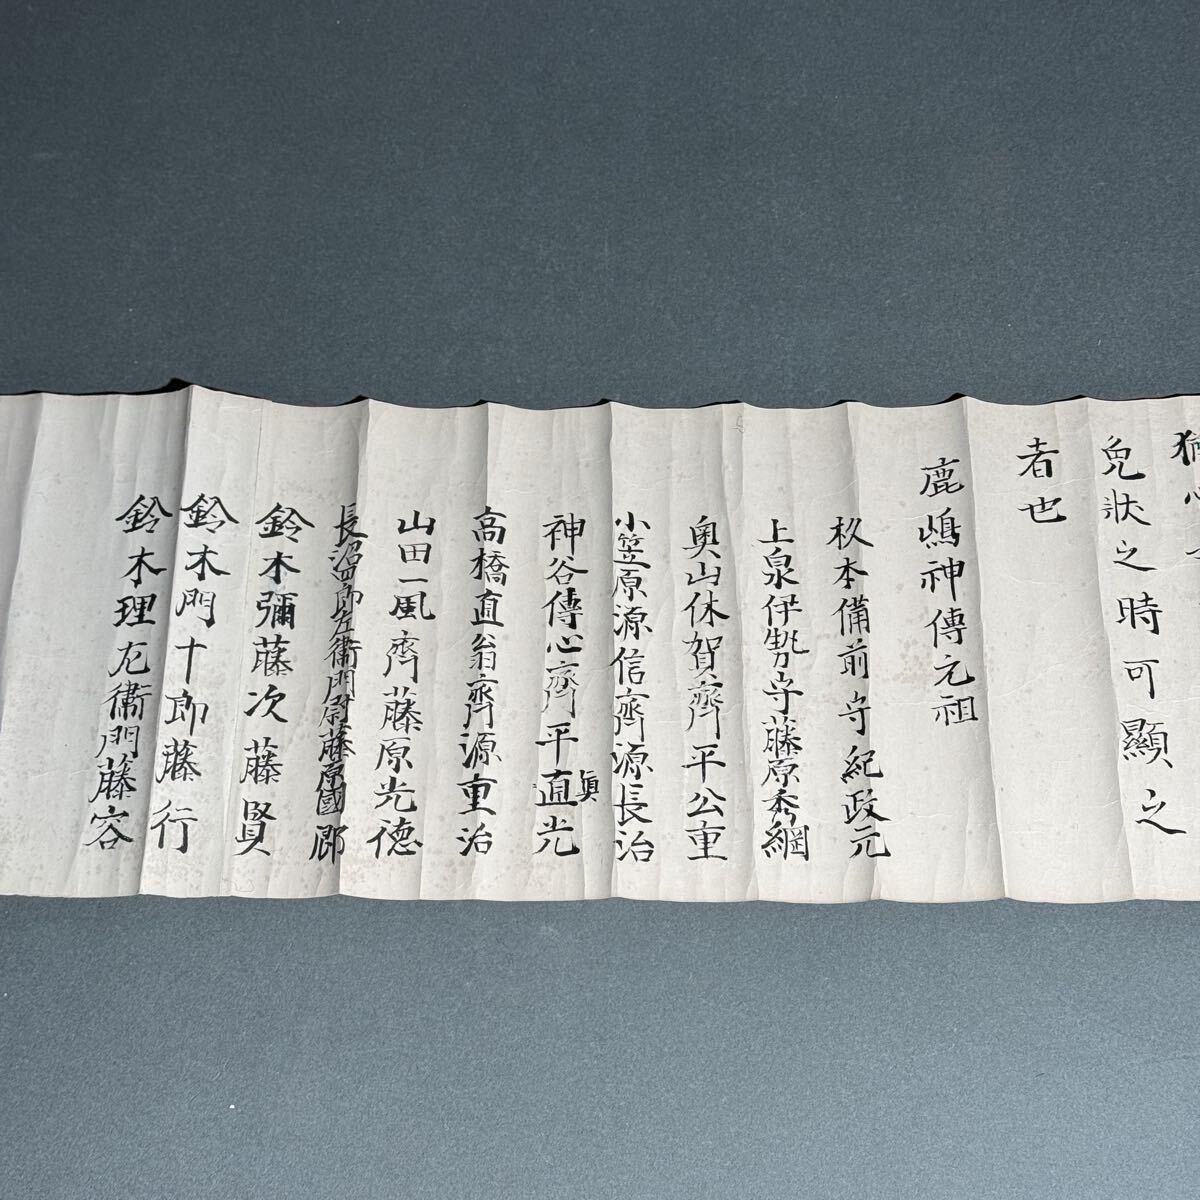 免状之時可顯之
者也
鹿嶋神傳元祖
杦本備前守紀政元
上泉伊勢守藤原秀綱
奥山休賀齊平公重
小笠原源信齊源長治
神谷傳心齊平直光
眞
高橋直翁齊源重治
山田一風齊藤原光德
長沼四郎左衞門尉藤原國郷
鈴木彌藤次藤賢
鈴木門十郎藤行
鈴木理左衞門藤容